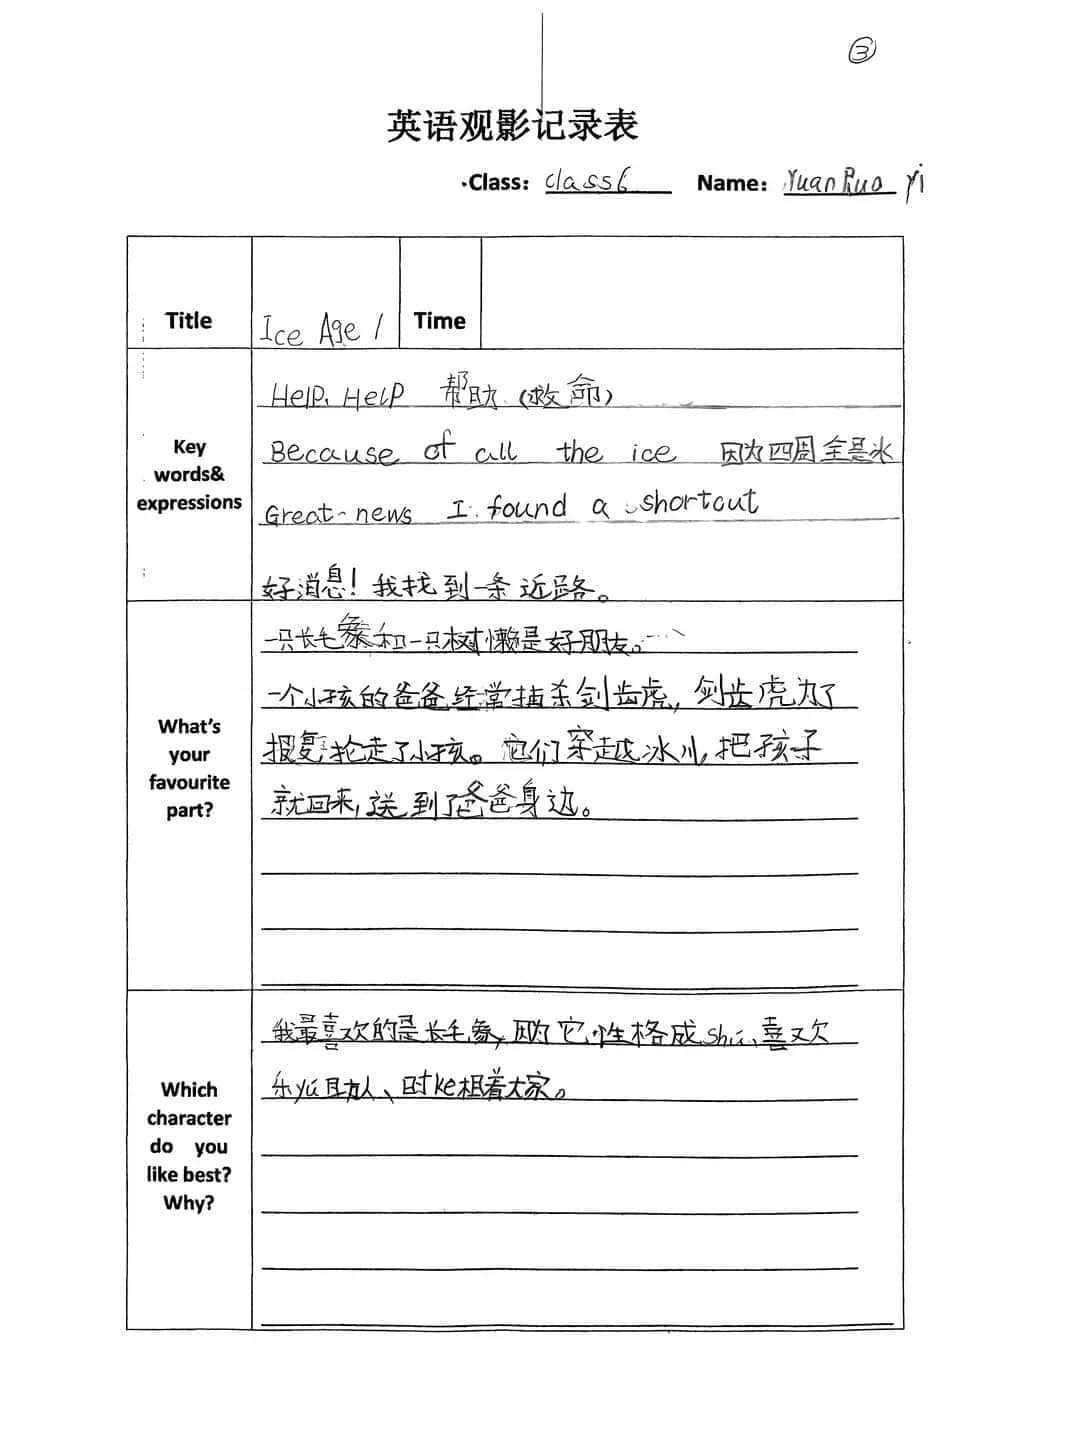 ③
英语观影记录表
Class: class6 Name: Yuan Ruo Yi
Title Ice Age 1 Time
Key words& expressions
Help, Help 帮助(救命)
Because of all the ice 因为四周全是冰
Great news I found a shortcut
好消息!我找到一条近路。
What's your favourite part?
一只长毛象和一只树懒是好朋友。
一个小孩的爸爸经常捕杀剑齿虎,剑齿虎为了
报复,抢走了小孩。它们穿越冰川,把孩子
就回来,送到了爸爸身边。
Which character do you like best? Why?
我最喜欢的是长毛象,因为它性格成shú、喜欢
乐yú助人、时ke想着大家。